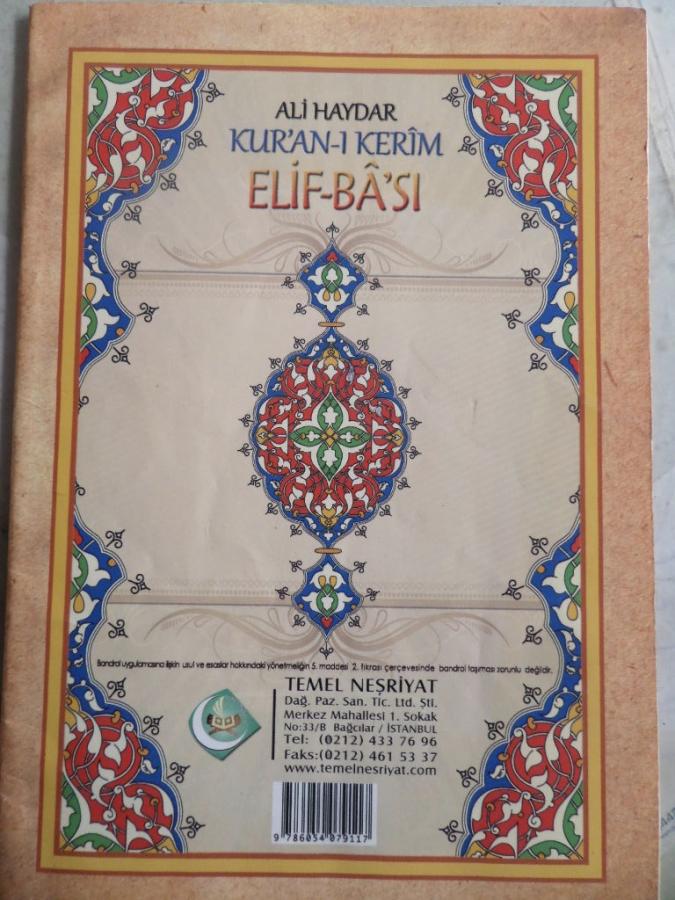 ALİ HAYDAR
KUR'AN-I KERÎM
ELİF-BÂ'SI
Bandrol uygulamasına ilişkin usul ve esaslar hakkındaki yönetmeliğin 5. maddesi 2. fıkrası çerçevesinde bandrol taşıması zorunlu değildir.
TEMEL NEŞRİYAT
Dağ. Paz. San. Tic. Ltd. Şti.
Merkez Mahallesi 1. Sokak
No:33/B Bağcılar / İSTANBUL
Tel: (0212) 433 76 96
Faks:(0212) 461 53 37
www.temelnesriyat.com
9 786054 079117